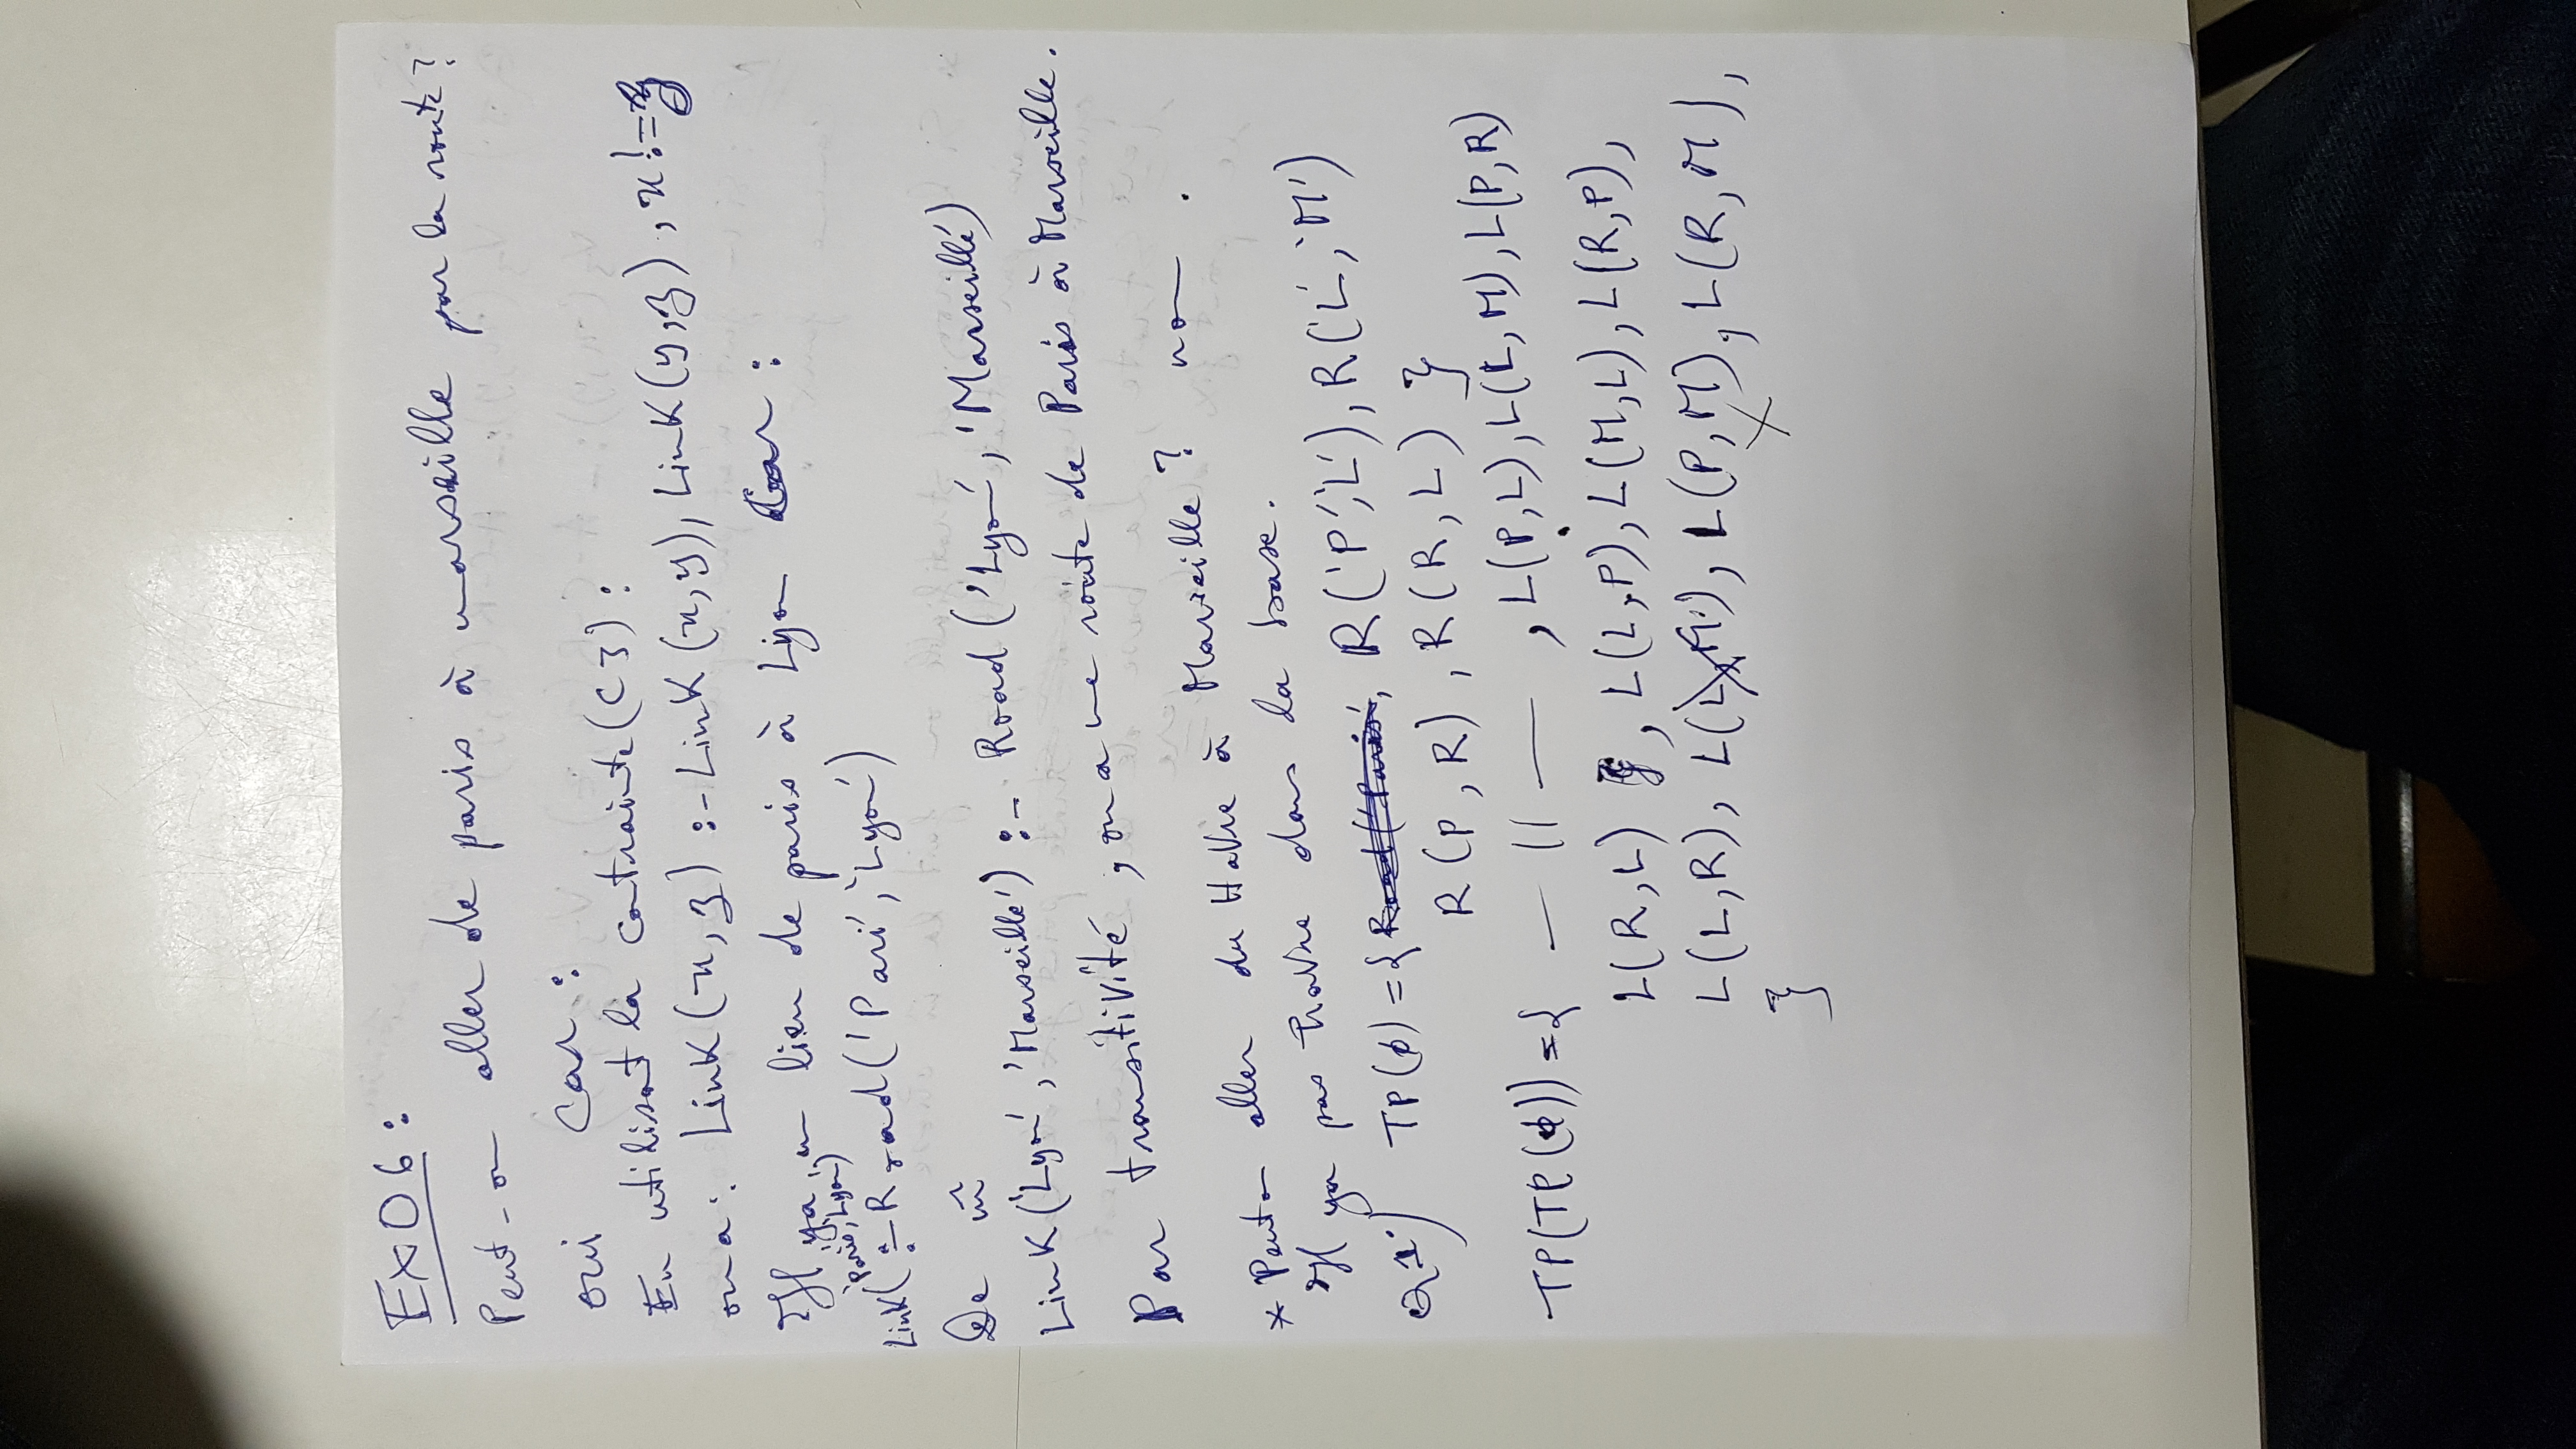 EXO6 :
Peut-on aller de paris à marseille par la route ?
oui car :
En utilisant la contrainte (C3) :
on a : Link(x, z) :- Link(x, y), Link(y, z), x != z
Il ya un lien de paris à Lyon car :
Link('Paris', 'Lyon') :- Road('Pari', 'Lyon')
De m̂
Link('Lyon', 'Marseille') :- Road('Lyon', 'Marseille')
Par transitivité, on a une route de Paris à Marseille.
* Peut on aller du Havre à Marseille ? non .
Il ya pas Havre dans la base.
Q1) TP(ϕ) = { Road('Paris', R('P', 'L'), R('L', 'M')
R(P, R), R(R, L) }
TP(TP(ϕ)) = { — || — , L(P, L), L(L, M), L(P, R)
L(R, L) , L(L, P), L(M, L), L(R, P),
L(L, R), L(L, M), L(P, M), L(R, M),
}